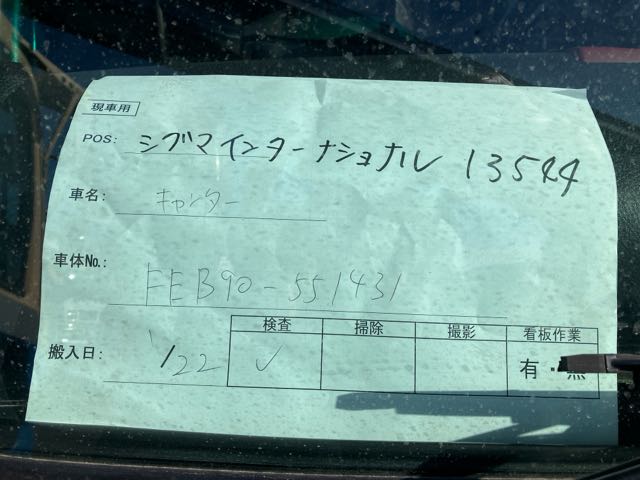 現車用
POS: シグマインターナショナル 13544
車名: キャンター
車体No.: FEB90-551431
検査 掃除 撮影 看板作業
搬入日: 1/22 ✓ 有・無